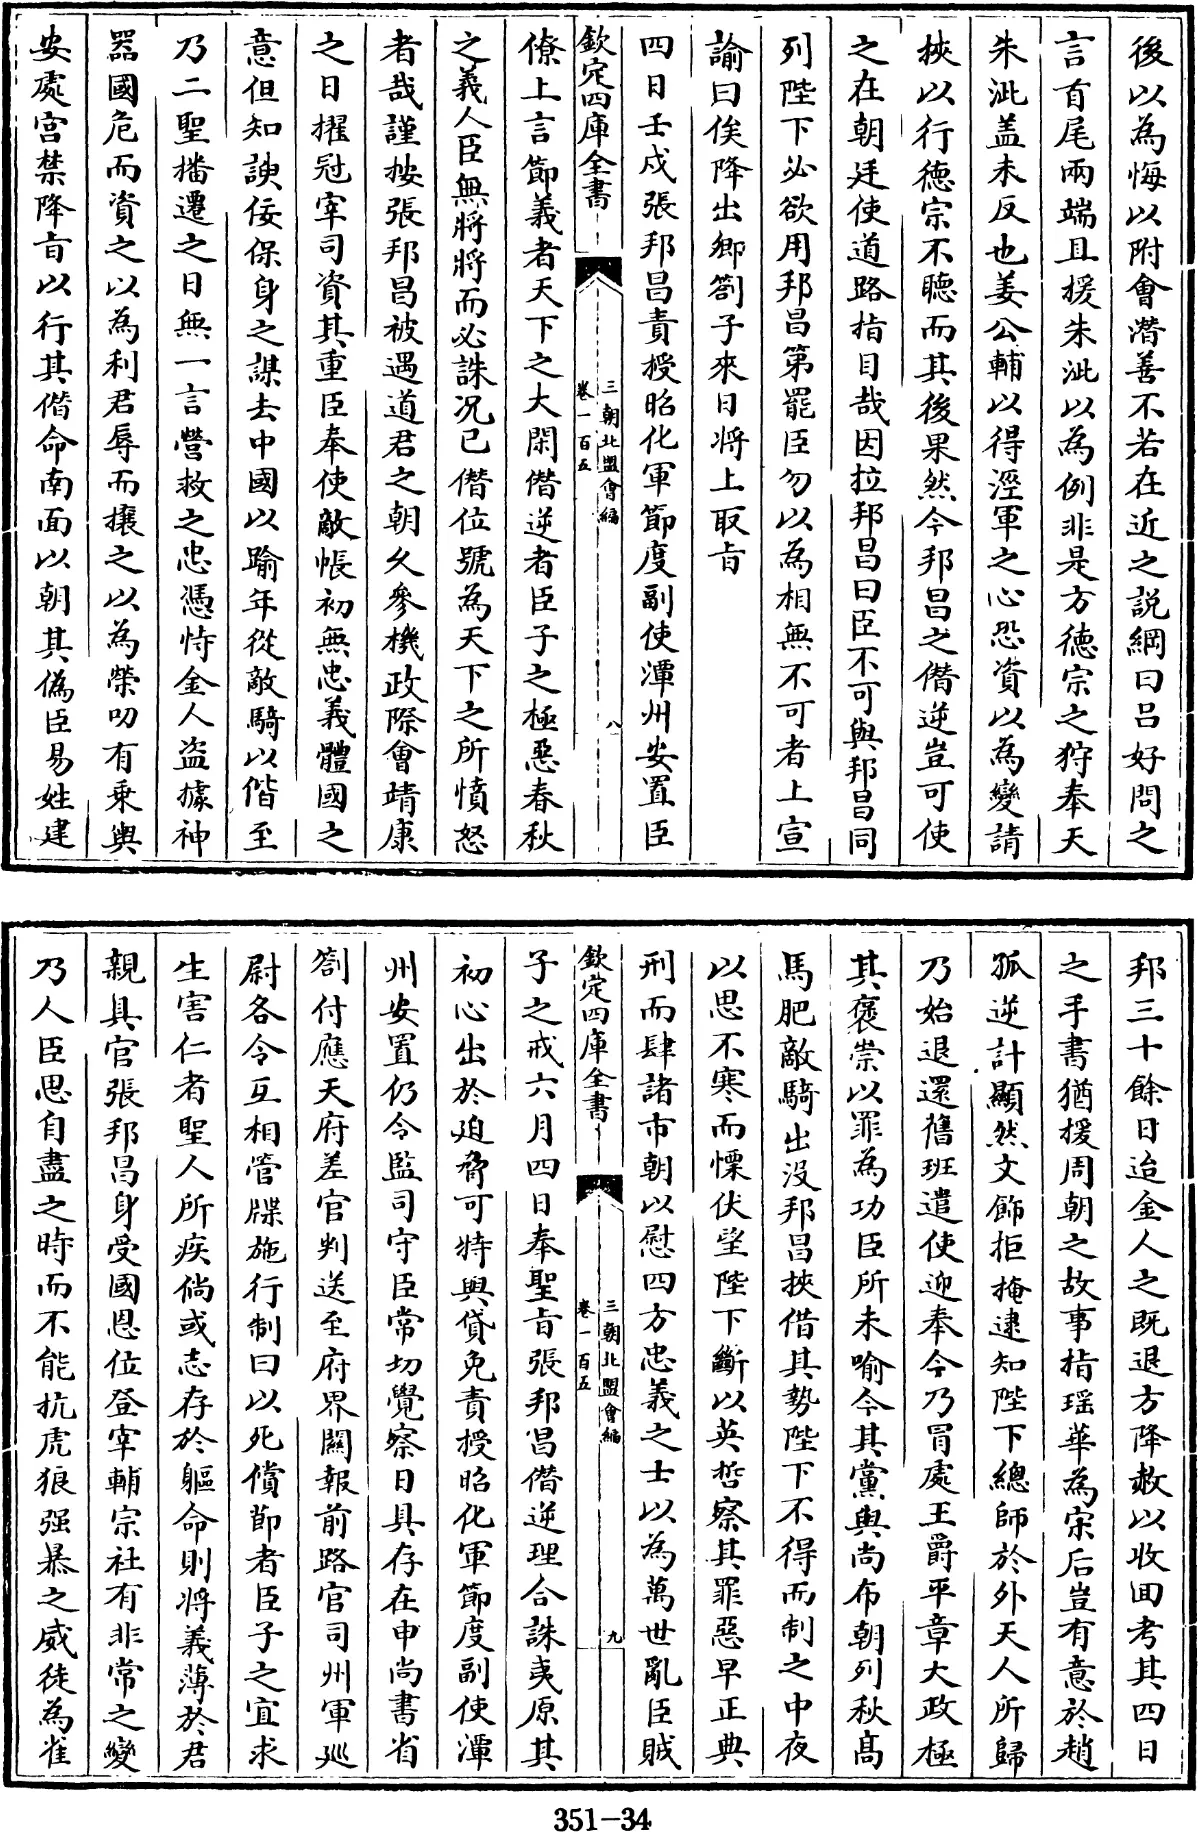 後以為悔以附會濳善不若在近之説綱曰呂好問之
言首尾兩端且援朱泚以為例非是方德宗之狩奉天
朱泚盖未反也姜公輔以得涇軍之心恐資以為變請
挾以行德宗不聽而其後果然今邦昌之僭逆豈可使
之在朝廷使道路指目哉因拉邦昌曰臣不可與邦昌同
列陛下必欲用邦昌第罷臣勿以為相無不可者上宣
諭曰俟降出卿劄子來日將上取㫖
四日壬戌張邦昌責授昭化軍節度副使潭州安置臣
欽定四庫全書
三朝北盟會編
卷一百五
八
僚上言節義者天下之大閑僭逆者臣子之極惡春秋
之義人臣無將將而必誅况已僭位號為天下之所憤怒
者哉謹按張邦昌被遇道君之朝久參機政際會靖康
之日擢冠宰司資其重臣奉使敵帳初無忠義體國之
意但知諛佞保身之謀去中國以踰年從敵騎以偕至
乃二聖播遷之日無一言營救之忠憑恃金人盜據神
器國危而資之以為利君辱而攘之以為榮叨有乗輿
安處宫禁降㫖以行其僭命南面以朝其偽臣易姓建
邦三十餘日迨金人之既退方降赦以收囬考其四日
之手書猶援周朝之故事指瑶華為宋后豈有意於趙
孤逆計顯然文飾拒掩逮知陛下總師於外天人所歸
乃始退還舊班遣使迎奉今乃冒處王爵平章大政極
其褒崇以罪為功臣所未喻令其黨與尚布朝列秋髙
馬肥敵騎出没邦昌挾借其勢陛下不得而制之中夜
以思不寒而慄伏望陛下斷以英哲察其罪惡早正典
刑而肆諸市朝以慰四方忠義之士以為萬世亂臣賊
欽定四庫全書
三朝北盟會編
卷一百五
九
子之戒六月四日奉聖㫖張邦昌僭逆理合誅夷原其
初心出於迫脅可特與貸免責授昭化軍節度副使潭
州安置仍令監司守臣常切覺察日具存在申尚書省
劄付應天府差官判送至府界關報前路官司州軍巡
尉各令互相管牒施行制曰以死償節者臣子之宜求
生害仁者聖人所疾倘或志存於軀命則將義薄於君
親具官張邦昌身受國恩位登宰輔宗社有非常之變
乃人臣思自盡之時而不能抗虎狼强暴之威徒為雀
351-34